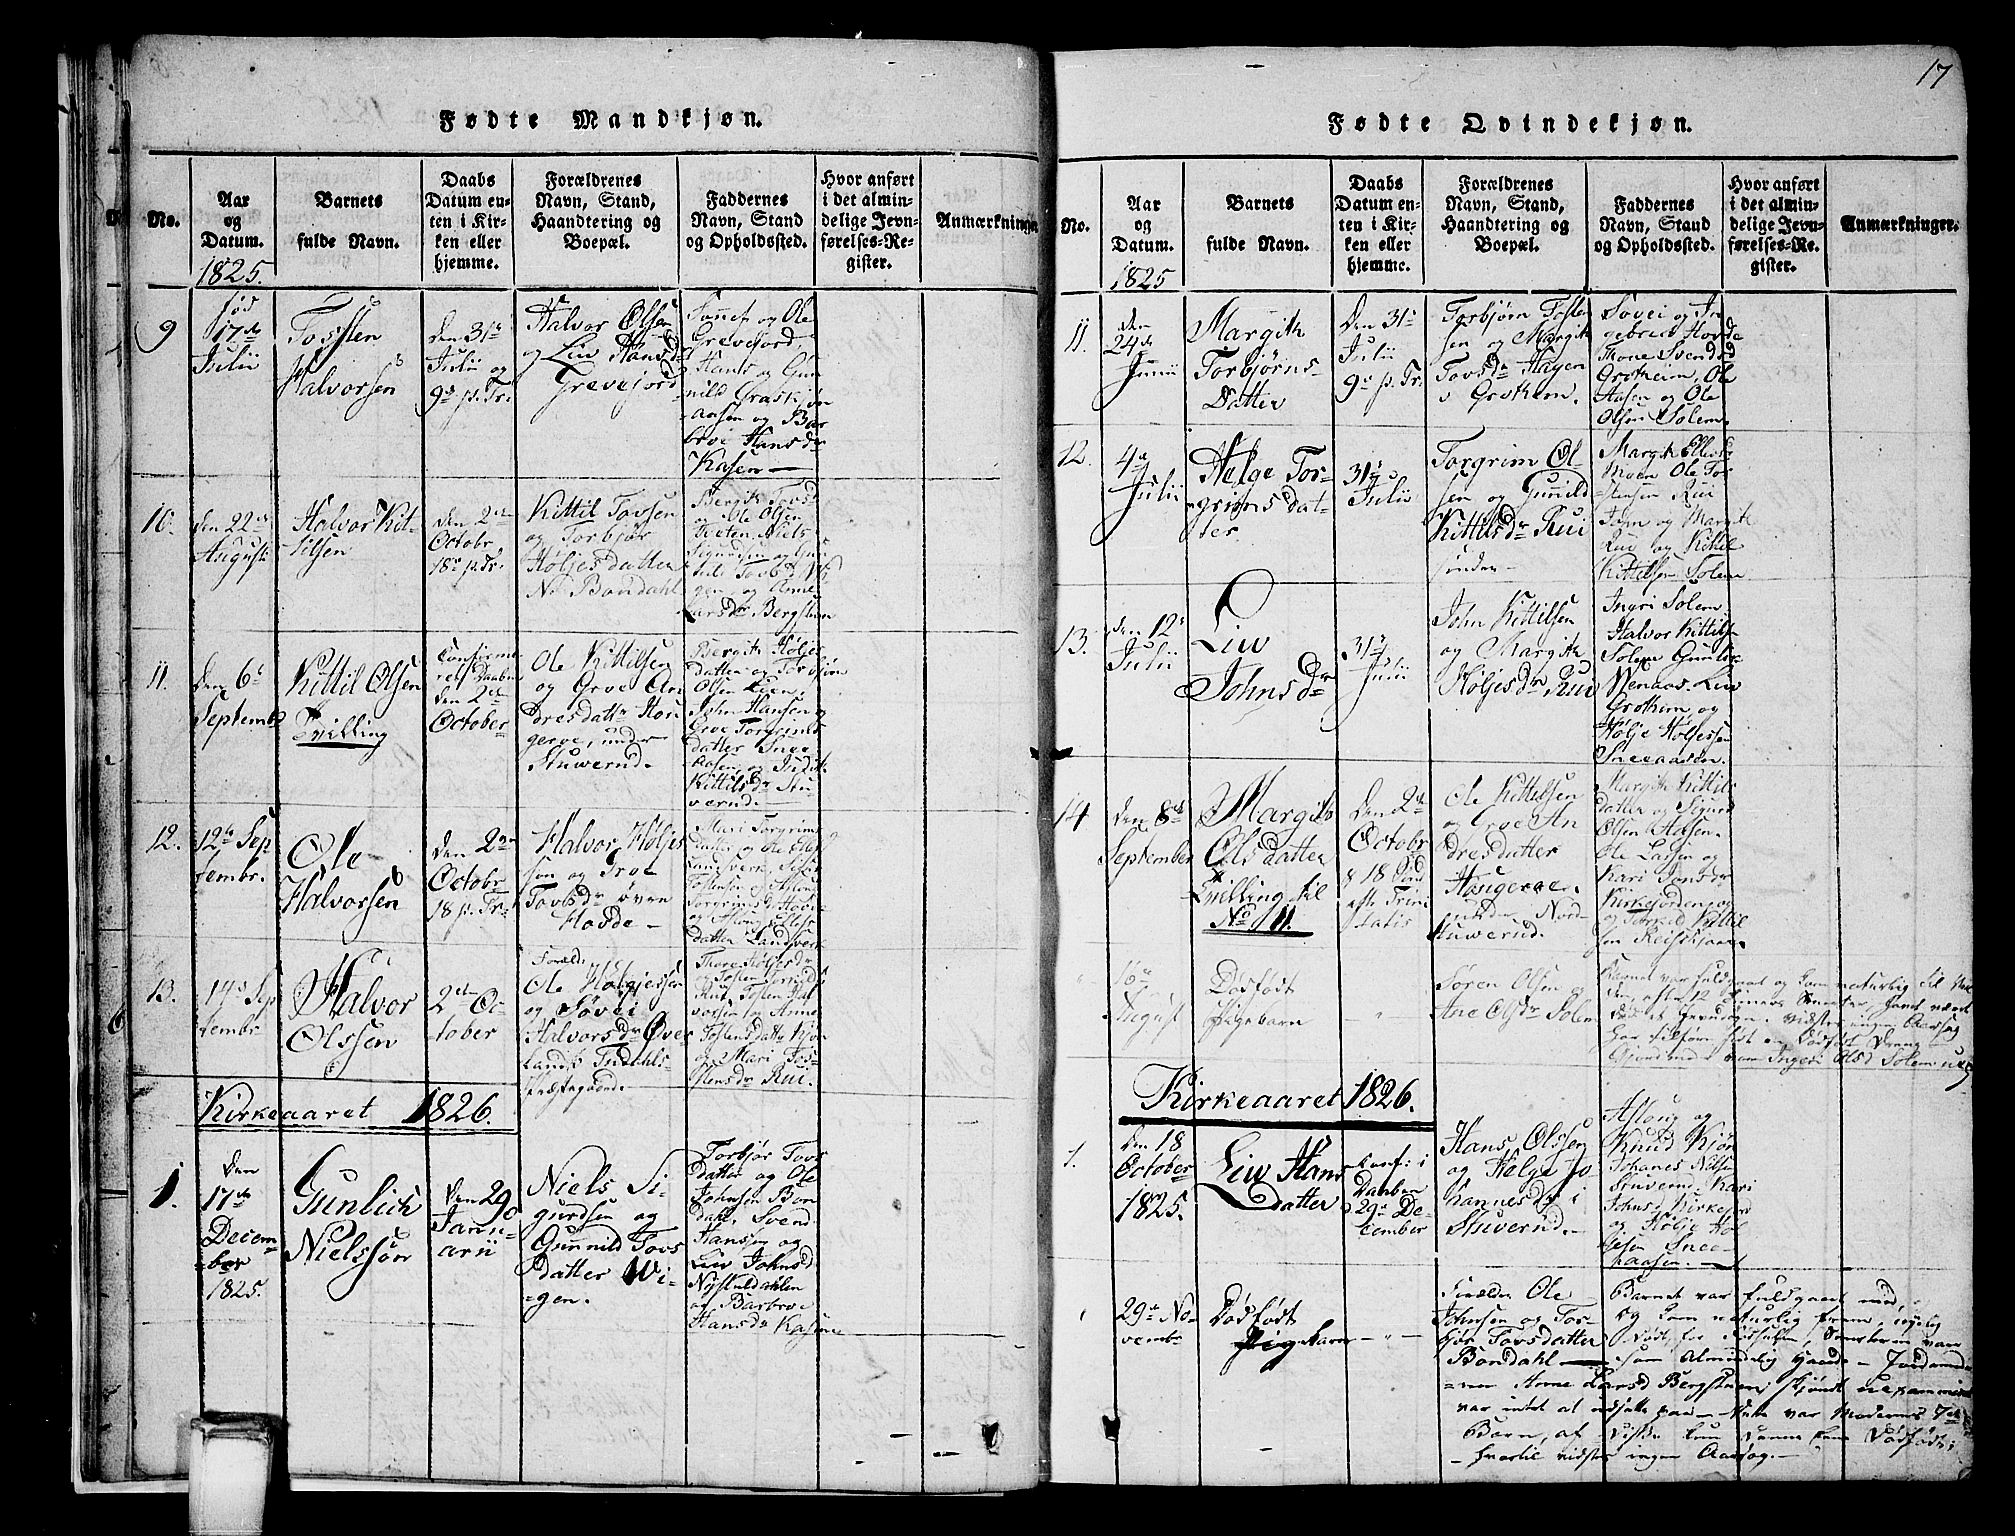 Fødte Mandkjøn.
No.
Aar
og
Datum.
1825.
Barnets
fulde Navn.
Daabs
Datum en-
ten i Kir-
ken eller
hjemme.
Forældrenes
Navn, Stand,
Haandtering og
Boepæl.
Faddernes
Navn, Stand
og Opholdssted.
Hvor anført
i det almin-
delige Jevn-
førelses-Re-
gister.
Anmærkninger
9
fød
17de
Julii
Tossten
Halvorsen
den 31te
Julii og
9de p. Tr.
Halvor Olsen
og Liv Hansd.
Grevejord
og Ole
Grevejord
Hans og Gun-
nild Graskjøn
aasen og Bar
broe Hansdr
Kasen
10.
den 22de
Augusti
Halvor Kit-
tilsen
den 2den
Octobr
18de p. Tr.
Kittil Tovsen
og Torbjør
Høljesdatter
No Bondahl
Bergith Tovsd
og Ole Olsen
Tveten, Niels
Sigurdsen og Gun
nild Tovsdr Wi
gen og Anne
Larsdr Bergstuen
11.
den 6te
Septembr
Kittil Olsen
Tvilling
Confirme-
ret Daaben
den 2den
October
Ole Kittilsen
og Grve An
dresdattr Hou
gerve, under
Stuverud.
Bergith Høljes
datter og Torbjørn
Olsen Lien,
John Hansen og
Grve Torgrims
datter Snee
aasen og
Kittilsdr Stu
verud.
12.
12te Sep
tembr.
Ole
Halvorsen
den 2den
Octobr
18 p. Tr.
Halvor Høljes
søn og Troe
Tovsdr øvre
Hovde
Mari Torgrims
datter og Ole
Landverk,
Tostensen og Aslou
Torgrimsdr Hovde
og Aslou Olsd
datter Landverk
13.
14de Sep
tembr
Halvor
Olssen
2den Oc-
tober
Foræld:
Ole Høljessen
og Søvei
Halvorsdr Øver
Lands Tudahls
Præstegaard.
Thore Høljesdr
og Tosten
Rui, Tosten Hal
vorsen og Anne
Tostensdattr
og Mari Tos-
tensdr Rui.
Kirkeaaret 1826.
1.
Den
17de
Decem-
ber
1825.
Gunlich
Nielssøn
Den 29de
Janu-
arii
Niels Si-
gurdsen og
Gunnild Tovs
datter Wi-
gen.
Torbjør Tovs
datter og Ole
Johnsen Bon
dahl, Svend
Hansen og
Liv Johnsd
Nystuldahlen
og Barbroe
Hansdr Kasene
17
Fødte Qvindekjøn.
No.
Aar
og
Datum.
1825
Barnets
fulde Navn.
Daabs
Datum en-
ten i Kir-
ken eller
hjemme.
Forældrenes
Navn, Stand,
Haandtering og
Boepæl.
Faddernes
Navn, Stand
og Opholdssted.
Hvor anført
i det almin-
delige Jevn-
førelses-Re-
gister.
Anmærkninger.
11.
den
24de
Junii
Margith
Torbjørns-
Datter
Den 31te
Julii
9de p. Tr.
Torbjørn Tosten
sen og Margith
Tovsdr Hagen
v Grotheim.
Søvei og In
gebret Hovde
Thone Svendsd
Grotheim, Ole
Aasen og Ole
Olsen Solem.
12.
4de
Julii
Helge Tor-
grimsdat-
ter
31te
Julii
Torgrim Ol
sen og Gunild
Kittilsdr Rui
søndre
Margith Ellefsd
Moen Ole Tor
stensen Rui
John og Margith
Rui og Kittil
Kittelsen Solem
13.
Den 12te
Julii
Liv
Johnsdr
31te
Julii
John Kittilsen
og Margith
Høljesdr Rui
Ingri Solem
Halvor Kittils
Solem Gunlic
Wenaas. Liv
Grotheim og
Hølje Høljessen
Sneeaasen.
14
den 8de
September
Margith
Olsdatter
Tvilling til
No 11.
Den 2den
Octobr
18 Sønd
efter Trini
tatis
Ole Kittelsen
og Grve An
dresdatter
Hougerve.
under Nord
Stuverud.
Margith Kittils
datter og Sigurd
Olsen Aasen.
Ole Larsen og
Kari Jonsdr
Kirkejorden
og Torkild Kittil
sen Reisskjaar.
16de
August
Dødfødt
Pigebarn
Søren Olsen og
Ane Olsdr Solem
Barnet var fuldgaaet og kom naturlig til Ver
den, efter 12 Timers
Kirkeaaret 1826.
1.
Den 18
October
1825.
Liv Hans
Datter
Conf: i
Daaben
29de De-
cember
Hans Olssen
og Helge Jo
hannesdr i
Stuverud.
Asloug og
Knud Kjøn
Johanes Nilsen
Stuverud. Kari
Johnsd Kirkejord
og Hølje Høl
jesen Snee-
aasen.
29de No
vembr
Dødfødt
Pigebarn
Foræld: Ole
Johnsen og Tor
bjør Tovsdatter
Bondahl
Barnet var fuldgaaet med,
og kom naturlig frem,
som Almindelig haarde - Jordemoder
Anne Larsd Bergstuen, skjøndt uexamineret
var intet at udsætte paa.
Barn, af
vidstes ingen Aarsag.